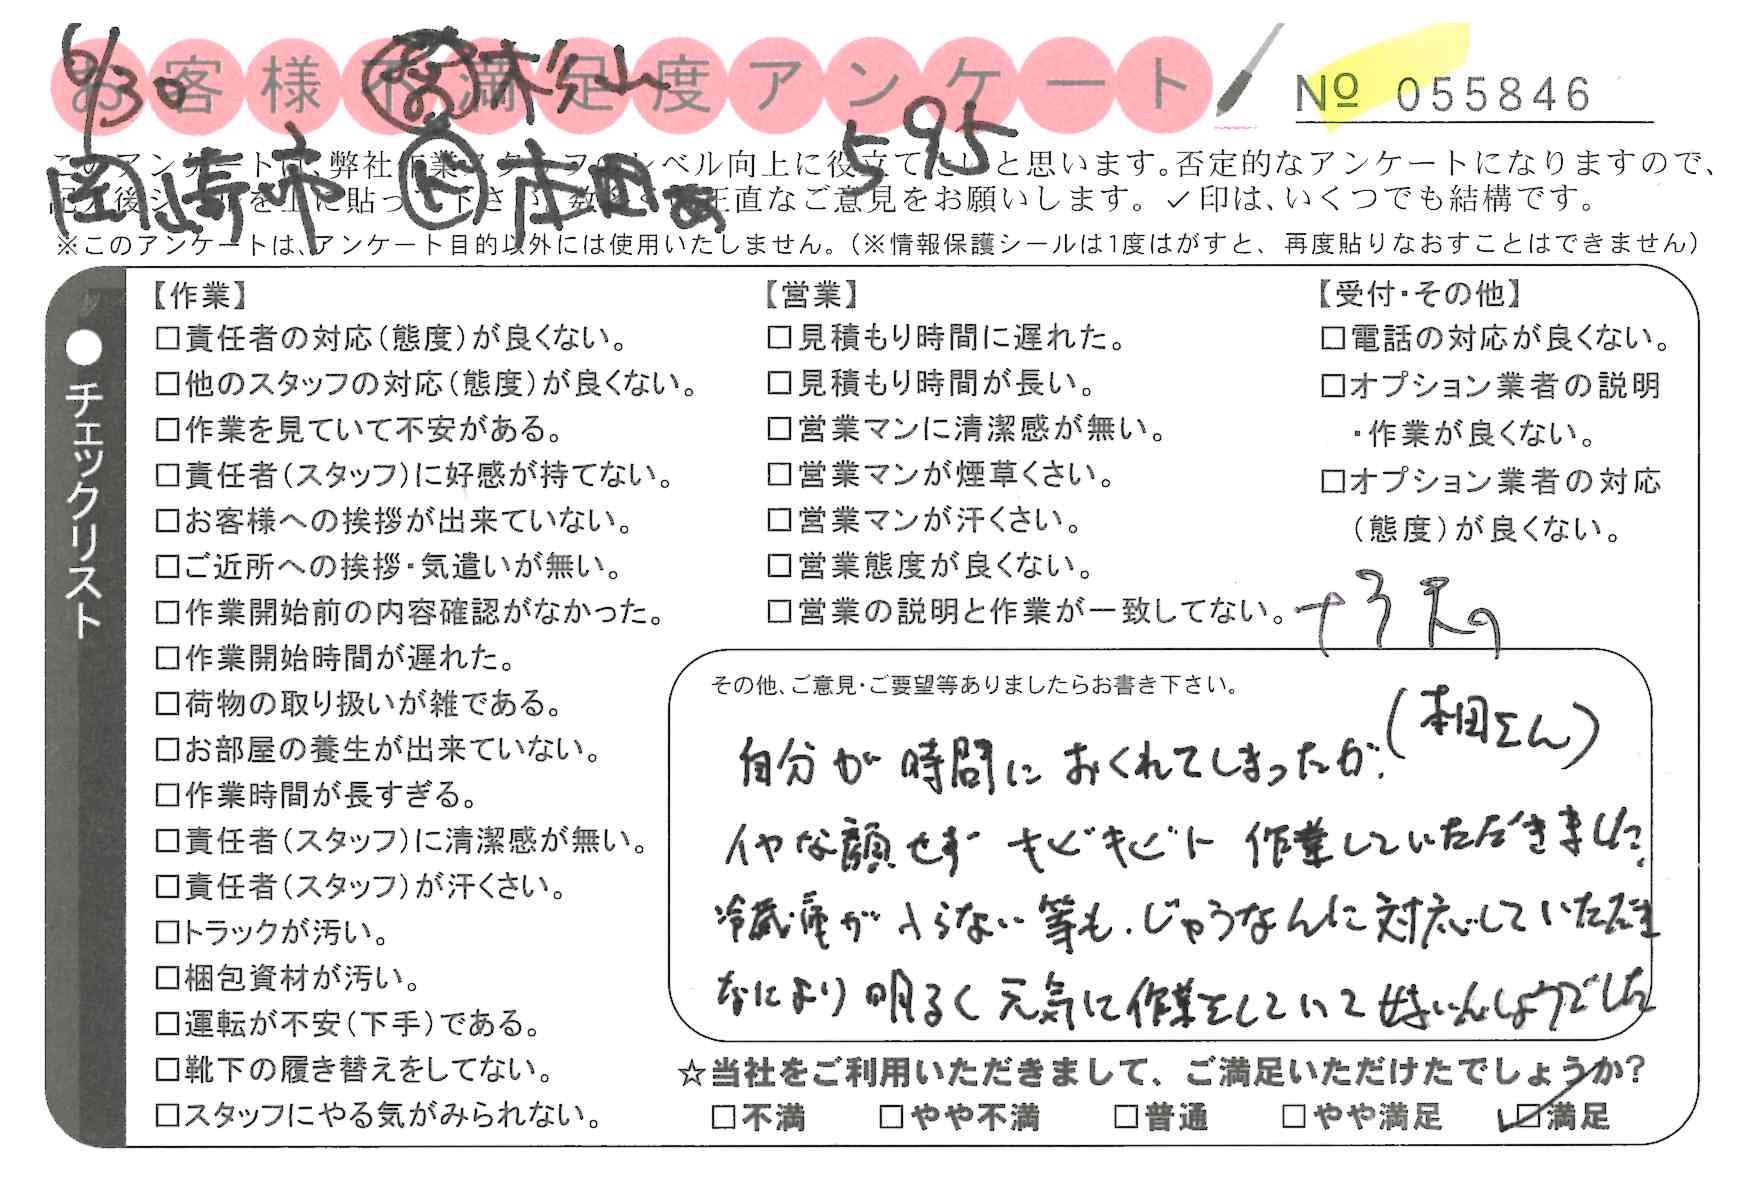 お客様不満足度アンケート
6/30
杉山
№ 055846
595
岡崎市
本田
このアンケートは、弊社作業スタッフのレベル向上に役立てたいと思います。否定的なアンケートになりますので、
記入後シールを上に貼って下さい。数多く正直なご意見をお願いします。✓印は、いくつでも結構です。
※このアンケートは、アンケート目的以外には使用いたしません。（※情報保護シールは1度はがすと、再度貼りなおすことはできません）
●チェックリスト
【作業】
□責任者の対応（態度）が良くない。
□他のスタッフの対応（態度）が良くない。
□作業を見ていて不安がある。
□責任者（スタッフ）に好感が持てない。
□お客様への挨拶が出来ていない。
□ご近所への挨拶・気遣いが無い。
□作業開始前の内容確認がなかった。
□作業開始時間が遅れた。
□荷物の取り扱いが雑である。
□お部屋の養生が出来ていない。
□作業時間が長すぎる。
□責任者（スタッフ）に清潔感が無い。
□責任者（スタッフ）が汗くさい。
□トラックが汚い。
□梱包資材が汚い。
□運転が不安（下手）である。
□靴下の履き替えをしてない。
□スタッフにやる気がみられない。
【営業】
□見積もり時間に遅れた。
□見積もり時間が長い。
□営業マンに清潔感が無い。
□営業マンが煙草くさい。
□営業マンが汗くさい。
□営業態度が良くない。
□営業の説明と作業が一致してない。
【受付・その他】
□電話の対応が良くない。
□オプション業者の説明
・作業が良くない。
□オプション業者の対応
（態度）が良くない。
その他、ご意見・ご要望等ありましたらお書き下さい。
（本田さん）
自分が時間におくれてしまったが、
イヤな顔せず キビキビト 作業していただきました。
冷蔵庫が入らない等も、じゅうなんに対応していただき
なにより明るく元気に作業をしていて好いんしょうでした
☆当社をご利用いただきまして、ご満足いただけたでしょうか？
□不満 □やや不満 □普通 □やや満足 ☑満足